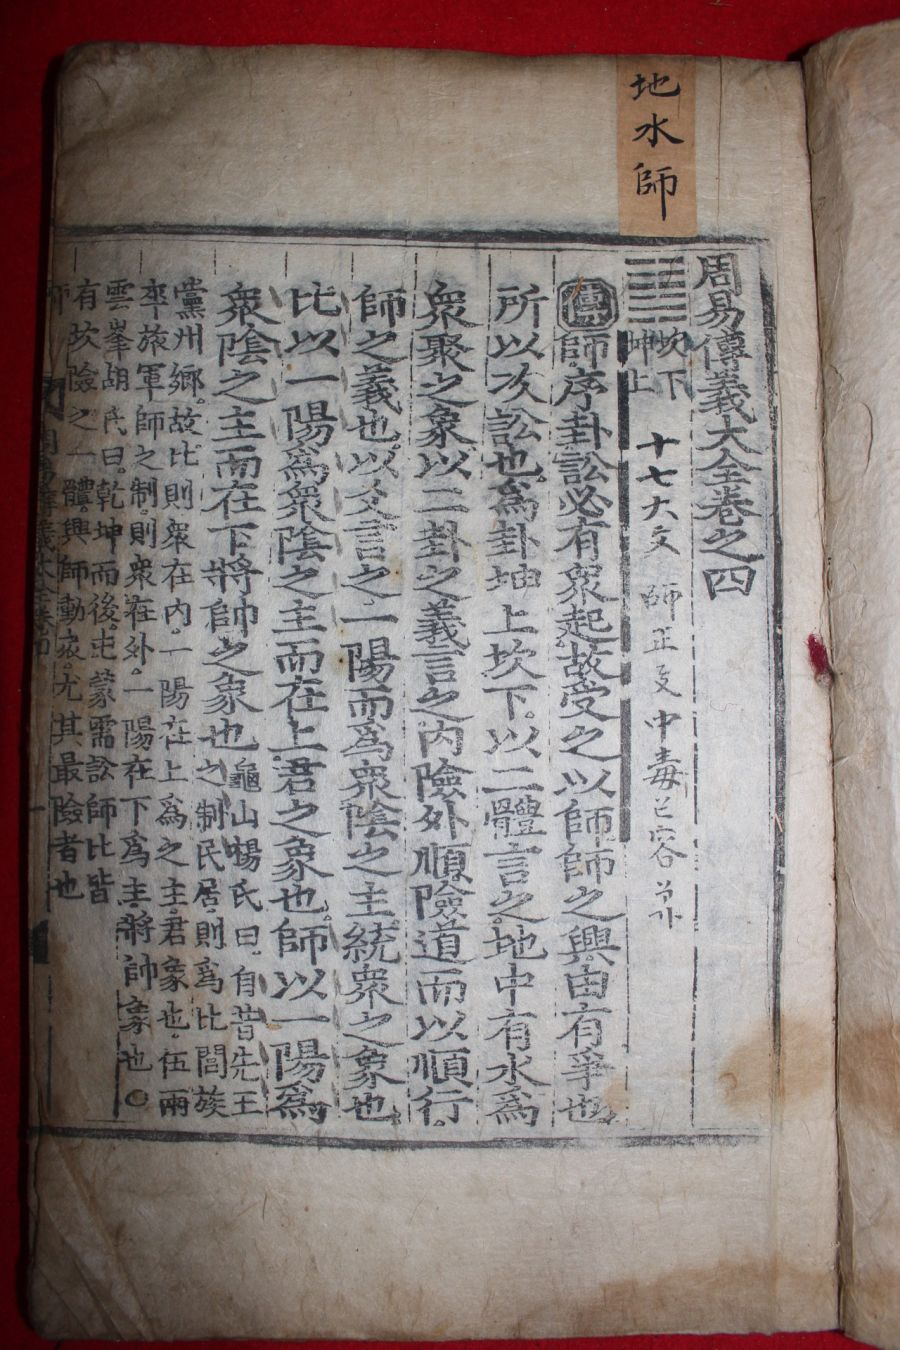 地水師
周易傳義大全卷之四
坎下
坤上
十七大文 師正文中毒
傳師序卦訟必有衆起故受之以師師之興由有爭也
所以次訟也爲卦坤上坎下以二體言之地中有水爲
衆聚之象以二卦之義言之內險外順險道而以順行
師之義也以爻言之一陽而爲衆陰之主統衆之象也
比以一陽爲衆陰之主而在上君之象也師以一陽爲
衆陰之主而在下將帥之象也
龜山楊氏曰自昔先王
之制民居則爲比閭族
黨州鄉故比則衆在內一陽在上爲之主君象也伍兩
卒旅軍師之制則衆在外一陽在下爲主將帥象也○
雲峯胡氏曰乾坤而後屯蒙需訟師比皆
有坎險之一體興師動衆尤其最險者也
師